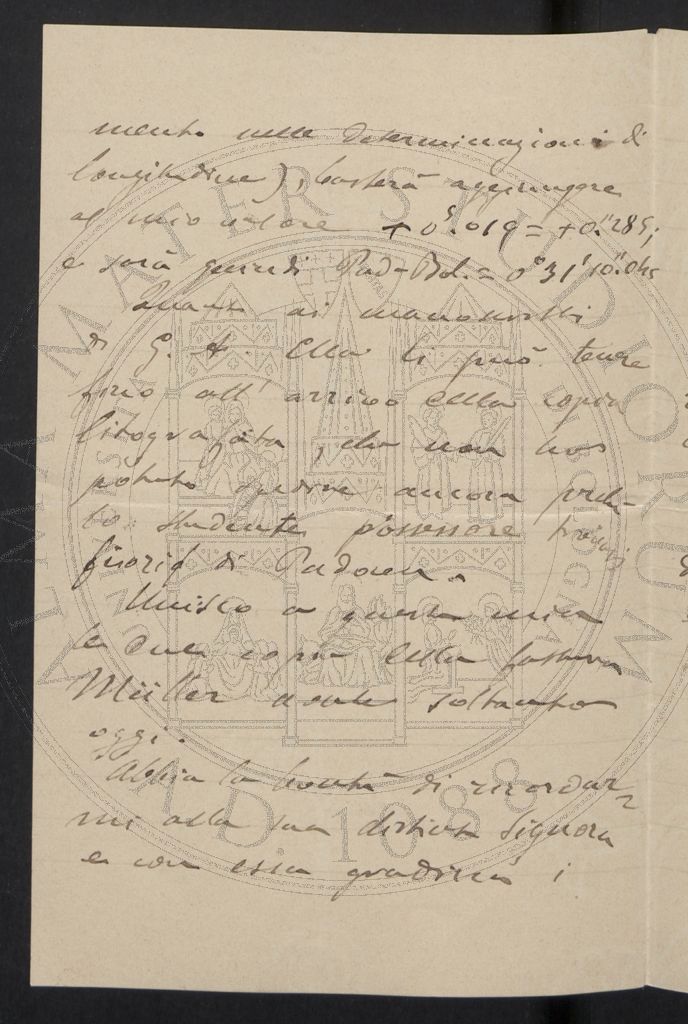 mento nelle determinazioni di
longitudine), basterà aggiungere
al mio valore + 0ˢ.019 = + 0."285;
e sarà quindi Pad-Bol. = 0° 31' 10".
Quanto ai manoscritti
di G. A. Ella li può tenere
fino all' arrivo della copia
litografata, che non ho
potuto spedire ancora
studente possessore
fuori di Padova.
Unisco a questa mia
le due copie della fattura
Müller avute soltanto
oggi.
Abbia la bontà di ricordar
mi alla sua distinta Signora
e con essa gradisca i
ALMA MATER STUDIORUM
A.D. 1088